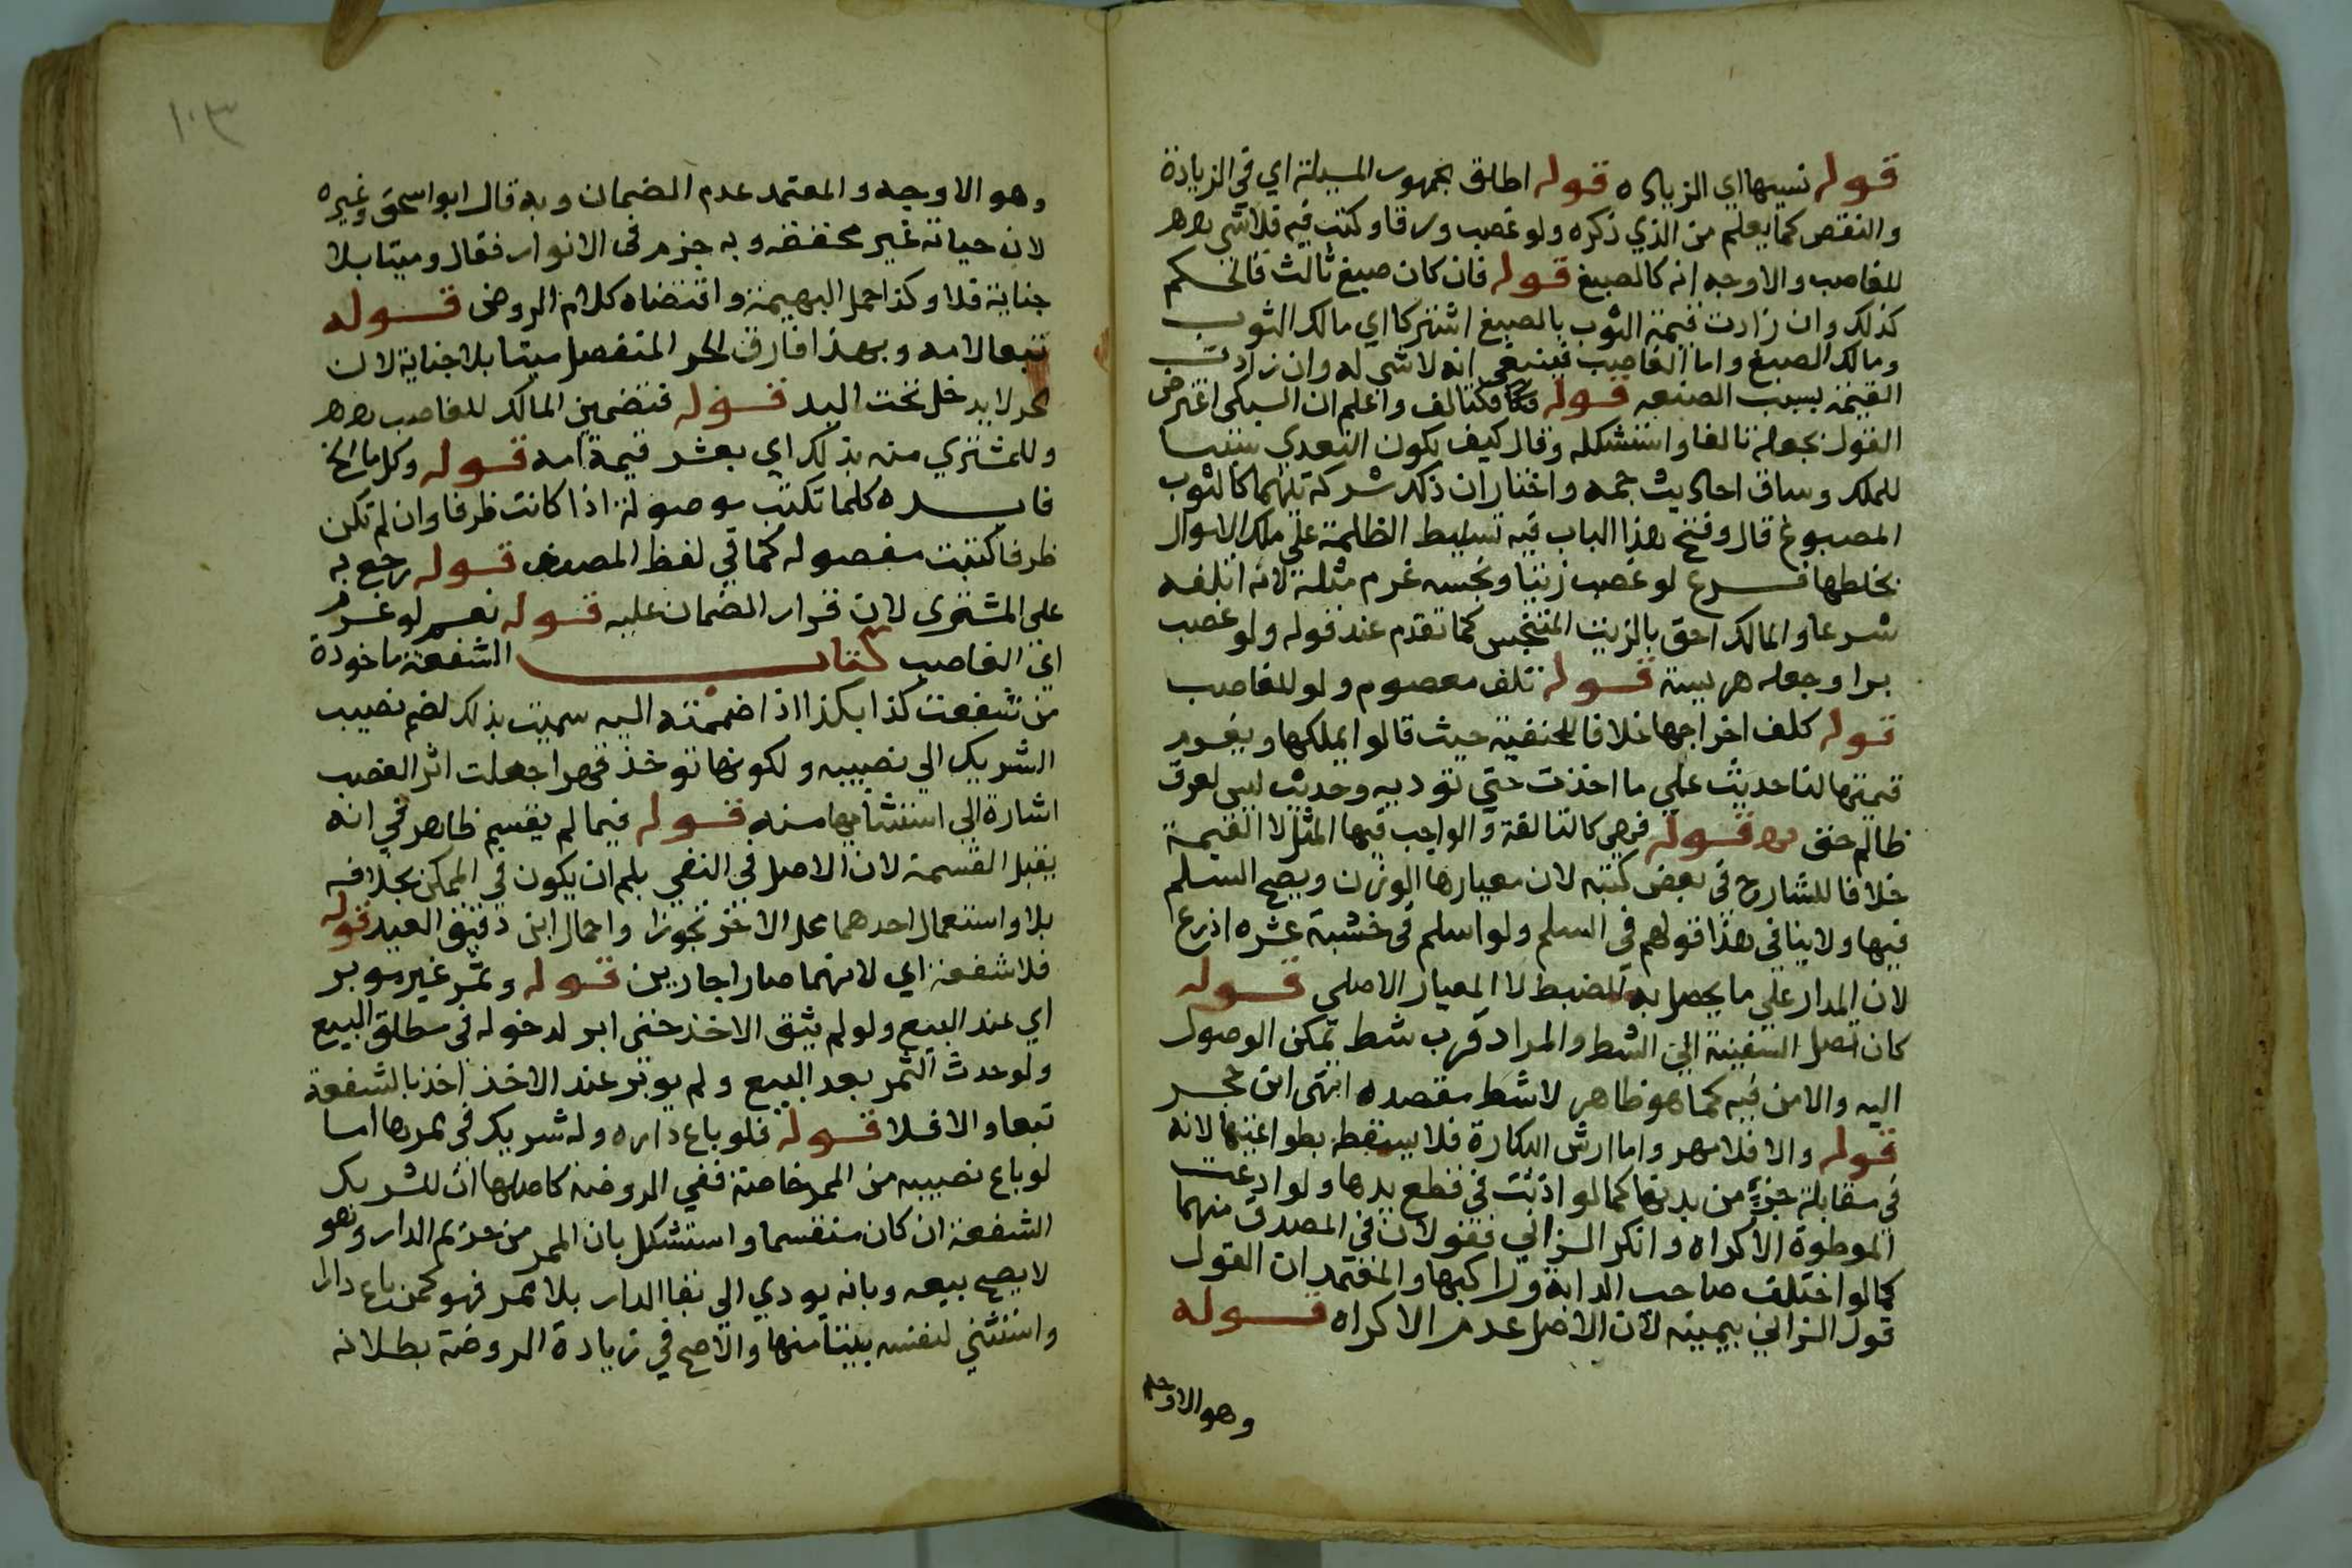 قوله نسبها اي الزيادة قوله اطلق الجمهور المسيلة اي في الزيادة
والنقص كما يعلم من الذي ذكره ولو غصب ورقا وكتب فيه فلا شي
للغاصب والاوجه انه كالصبغ قوله فان كان صبغ ثالث فالحكم
كذلك وان زادت قيمة الثوب بالصبغ اشتركا اي مالك الثوب
ومالك الصبغ واما الغاصب فينبغي انه لا شي له وان زادت
القيمة بسبب الصنعه قوله فكالتالف واعلم ان السبكي اعترض
القول بجعله تالفا واستشكله وقال كيف يكون التعدي سببا
للملك وساق احاديث جمه واختار ان ذلك شركة بينهما كالثوب
المصبوغ قال وفتح هذا الباب فيه تسليط الظلمة علي ملك الاموال
بخلطها فرع لو غصب زيتا ونجسه غرم مثله لانه اتلفه
شرعا والمالك احق بالزيت المتنجس كما تقدم عند قوله ولو غصب
برا وجعله هريسة قوله تلف معصوم ولو للغاصب
قوله كلف اخراجها خلافا للحنفية حيث قالوا يملكها ويغرم
قيمتها لنا حديث علي ما اخذت حتي توديه وحديث ليس لعرق
ظالم حق قوله فهي كالتالفة والواجب فيها المثل لا القيمة
خلافا للشارح في بعض كتبه لان معيارها الوزن ويصح السلم
فيها ولا ينافي هذا قولهم في السلم ولو اسلم في خشبة عشره اذرع
لان المدار علي ما يحصل به الضبط لا المعيار الاصلي قوله
كان تصل السفينة الي الشط والمراد قرب شط تمكن الوصول
اليه والامن فيه كما هو ظاهر لا شط مقصده انتهى ابن حجر
قوله والا فلا مهر واما ارش البكارة فلا يسقط بطواعيتها لانه
في مقابلة جزء من بدنها كما لو اذنت في قطع يدها ولو ادعت
الموطوة الاكراه وانكر الزاني فقولان في المصدق منهما
كما لو اختلف صاحب الدابة وراكبها والمعتمد ان القول
قول الزاني بيمينه لان الاصل عدم الاكراه قوله
وهو الاوجه
١٠٣
وهو الاوجه والمعتمد عدم الضمان وبه قال ابو اسحق وغيره
لان حياته غير محققه وبه جزم في الانوار فقال وميتا بلا
جناية فلا وكذا حمل البهيمة واقتضاه كلام الروض قوله
تبعا لامه وبهذا فارق الحر المنفصل ميتا بلا جناية لان
الحر لا يدخل تحت اليد قوله فتضمين المالك للغاصب
وللمشتري منه بذلك اي بعشر قيمة امه قوله وكل ما الخ
فايده كلما تكتب موصولة اذا كانت ظرفا وان لم تكن
ظرفا كتبت مفصوله كما في لفظ المصنف قوله رجع به
على المشتري لان قرار الضمان عليه قوله نعم لو غرم
اي الغاصب كتاب الشفعة ماخودة
من شفعت كذا بكذا اذا ضممته اليه سميت بذلك لضم نصيب
الشريك الي نصيبه ولكونها توخذ قهرا جعلت اثر الغصب
اشارة الي استثنايها منه قوله فيما لم يقسم ظاهر في انه
يقبل القسمة لان الاصل في النفي بلم ان يكون في الممكن بخلافه
بلا واستعمال احدهما محل الاخر تجوزا واحمال ابن دقيق العيد قوله
فلا شفعة اي لانهما صارا جارين قوله وثمر غير موبر
اي عند البيع ولو لم يتفق الاخذ حتي ابر لدخوله في مطلق البيع
ولو حدث الثمر بعد البيع ولم يوبر عند الاخذ اخذ بالشفعة
تبعا والا فلا قوله فلو باع داره وله شريك في ممرها اما
لو باع نصيبه من الممر خاصة ففي الروضه كاصلها ان للشريك
الشفعة ان كان منقسما واستشكل بان الممر من حريم الدار وهو
لا يصح بيعه وبانه يودي الي بقا الدار بلا ممر فهو كمن باع دارا
واستثني لنفسه بيتا منها والاصح في زيادة الروضة بطلانه